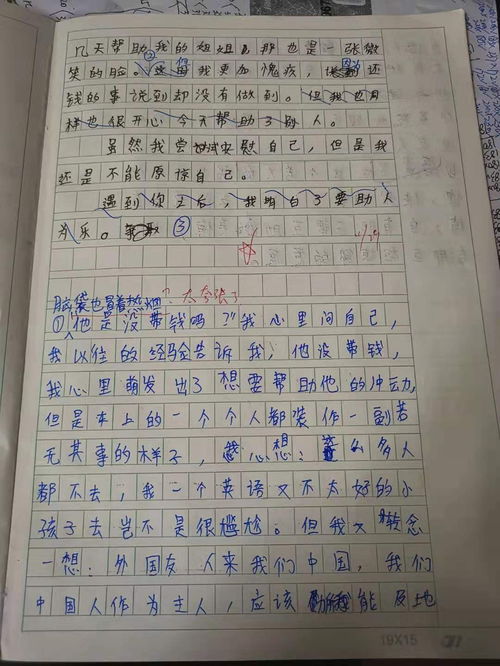 几天帮助我的姐姐，那也是一张微
笑的脸。②这但我更加愧疚，因为还
钱的事说到却没有做到。但我也同
样也很开心今天帮助了别人。
虽然我尝试安慰自己，但是我
还是不能原谅自己。
遇到你之后，我明白了要助人
为乐。③
脑袋也冒着热烟？太夸张了
①"他是没带钱吗？"我心里问自己，
我以往的经验告诉我，他没带钱，
我心里萌发出了想要帮助他的冲动，
但是车上的一个个人都装作一副若
无其事的样子，我心想：这么多人
都不去，我一个英语又不太好的小
孩子去岂不是很尴尬。但我又转念
一想：外国友人来我们中国，我们
中国人作为主人，应该能及地
19×15